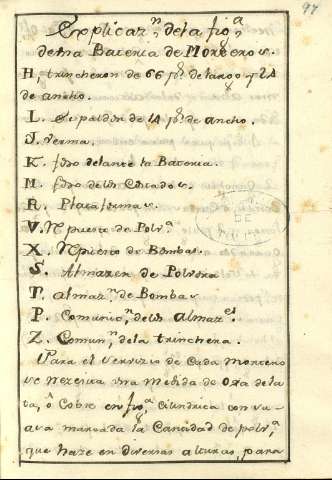 97
Explicaz.n de la fig.a
de una Bateria de Morteros.
H, trincheron de 66 ps. de largo y 24
de ancho.
L. Espaldon de 14 ps. de ancho.
J. verma.
K. foso delante la Bateria.
M. foso de los Costados
R. Plataformas
V. Rpuesto de Polv.a
X. Rpuesto de Bombas.
S. Almazen de Polvora
T. almaz.n de Bombas
P. Comunic.n de los almaz.es
Z. Comun.n de la trinchera.
Para el servizio de Cada mortero
se nezesita una medida de oxa de la
ta, ô Cobre en fig.a Cilindrica con su
marcada la Cantidad de polv.a
que haze en diversas alturas, para